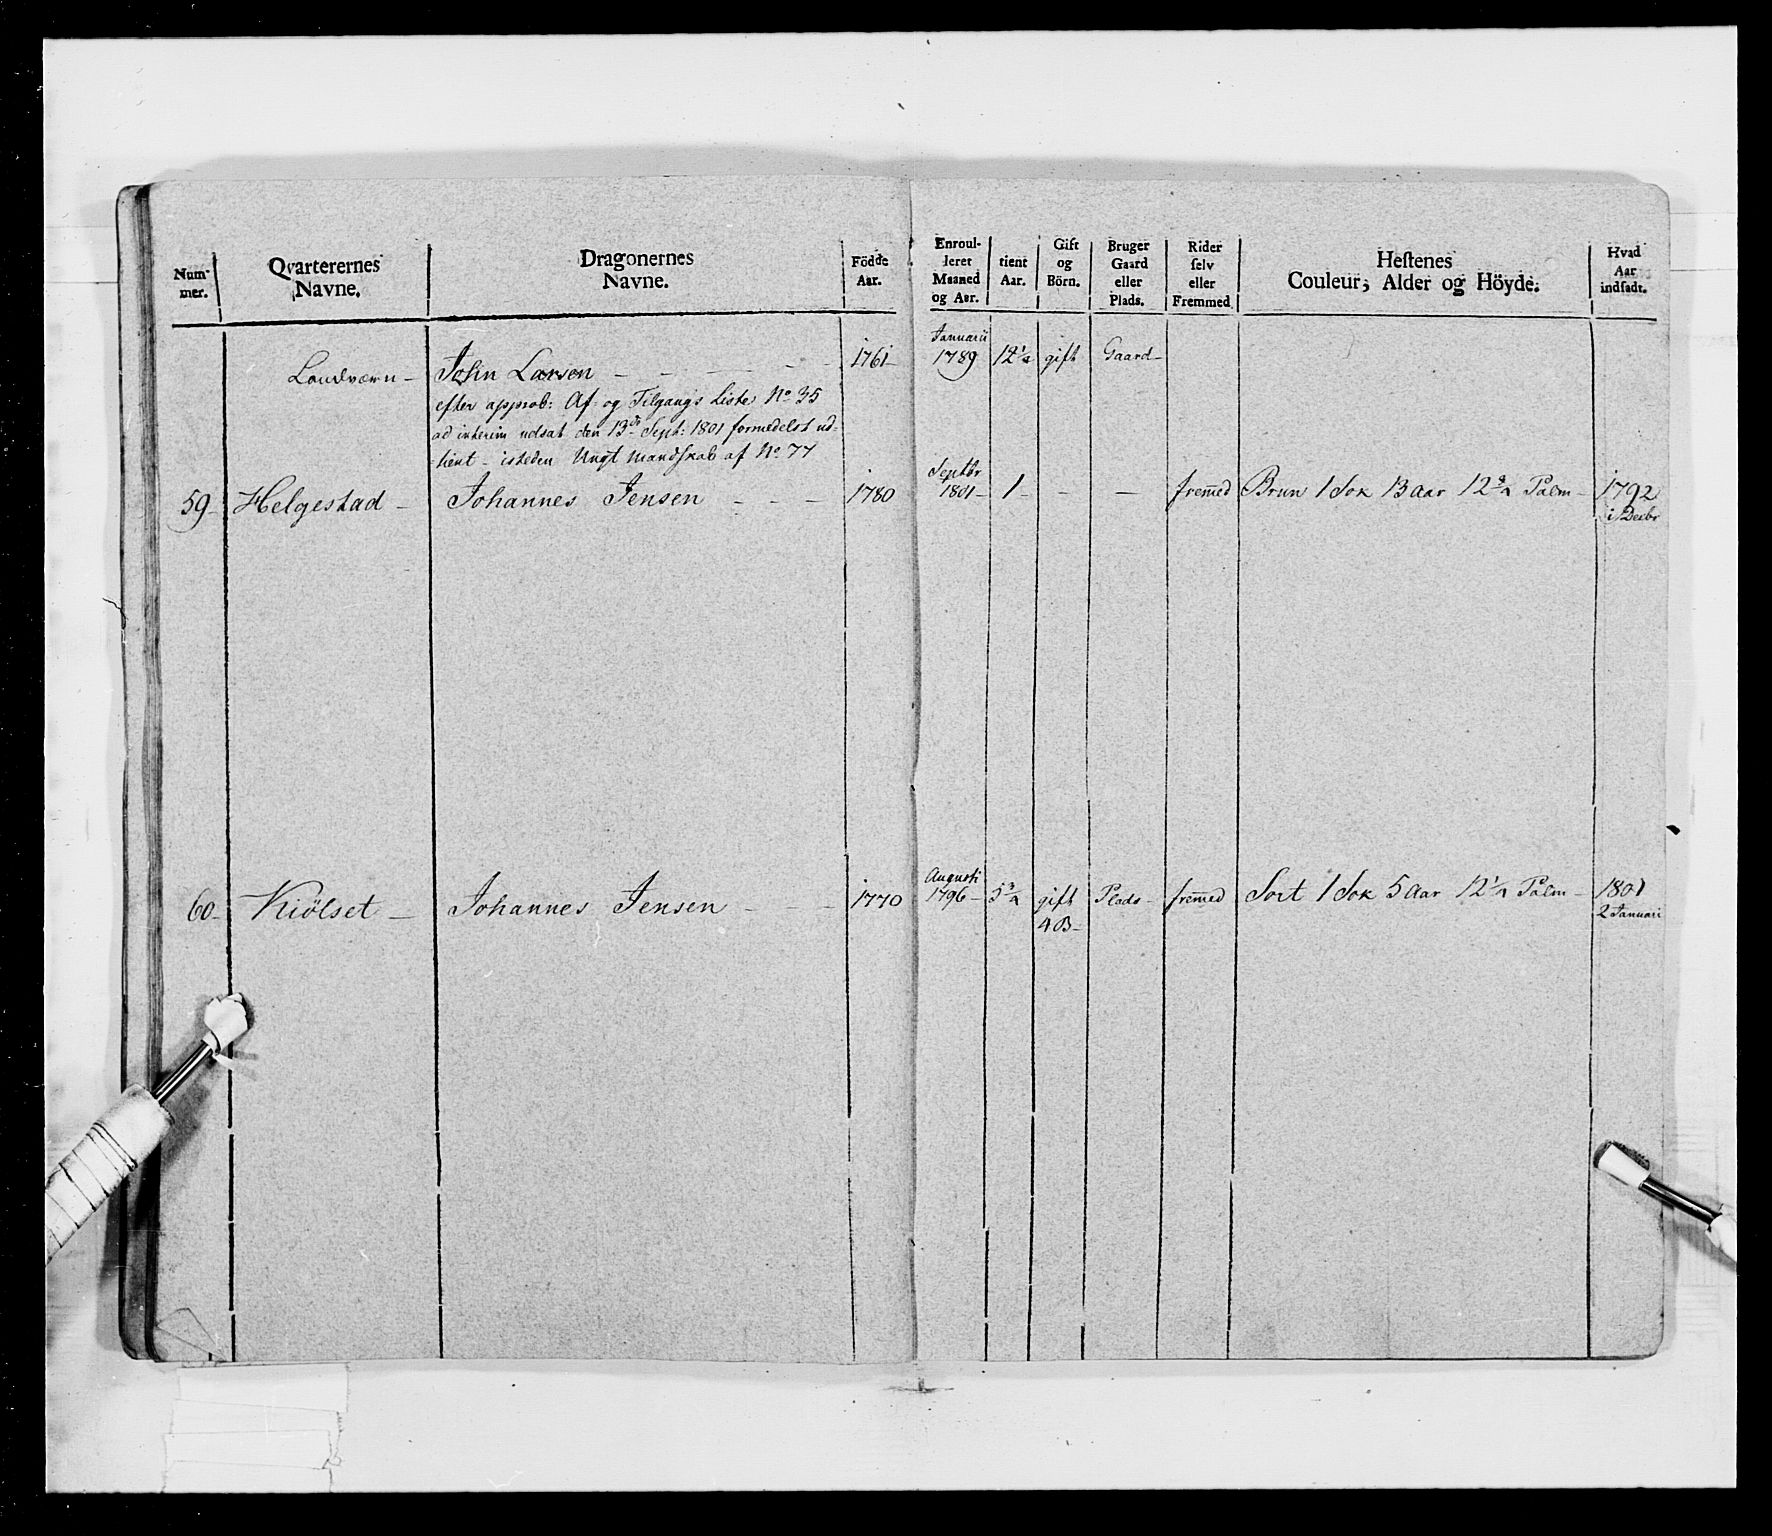 Num-
mer.
Qvarterernes
Navne.
Dragonernes
Navne.
Födde
Aar.
Enroul-
leret
Maaned
og Aar.
tient
Aar.
Gift
og
Börn.
Bruger
Gaard
eller
Plads.
Rider
selv
eller
Fremmed
Hestenes
Couleur, Alder og Höyde.
Hvad
Aar
indsadt.
Landværn – John Larsen – – – – – 1761 Januarii 1789 12 1/4 gift Gaard –
efter approb: Af- og Tilgangs Liste No 35
ad interim udsat den 13de Sept: 1801 formedelst ud-
tient – isteden Ungt Mandskab af No 77
59 – Helgestad – Johannes Jensen – – – 1780 Septbr 1801 – 1 – – – fremed Brun 1 Sok 13 Aar 12 3/4 Palm – 1792
i Decbr
60 – Kiölset – Johannes Jensen – – – 1770 Augusti 1796 – 5 3/4 gift Plads – fremed Sort 1 Sok 5 Aar 12 1/4 Palm – 1801
4 B – 2 Januari